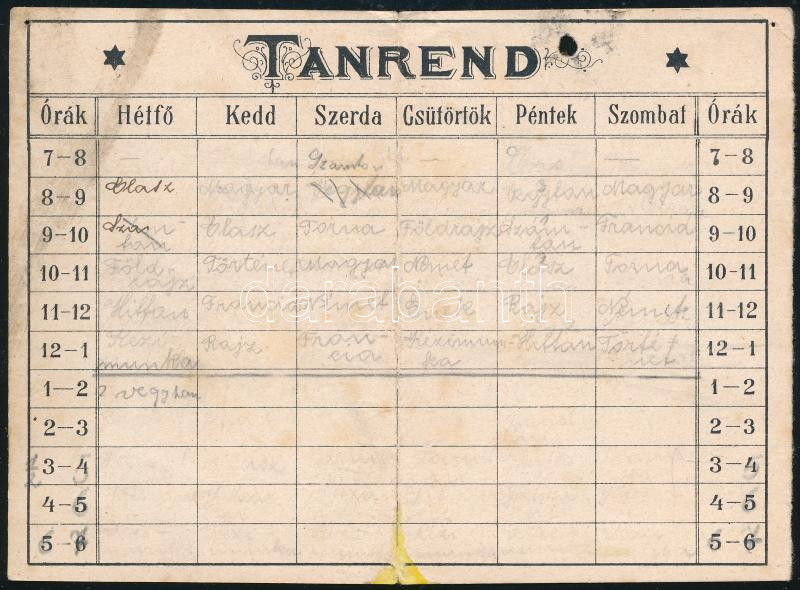 TANREND
Órák Hétfő Kedd Szerda Csütörtök Péntek Szombat Órák
7–8 — Számtan — — 7–8
8–9 Olasz Magyar Vegytan Magyar Vegytan Magyar 8–9
9–10 Számtan Olasz Torna Földrajz Számtan Francia 9–10
10–11 Földrajz Történe Magyar Német Olasz Torna 10–11
11–12 Hittan Francia Német Ének Rajz Német 11–12
12–1 Kézimunka Rajz Francia Kézimunka Hittan Történet 12–1
1–2 vegytan 1–2
2–3 2–3
3–4 5 3–4 5
4–5 6 4–5 6
5–6 7 5–6 7
darabanth